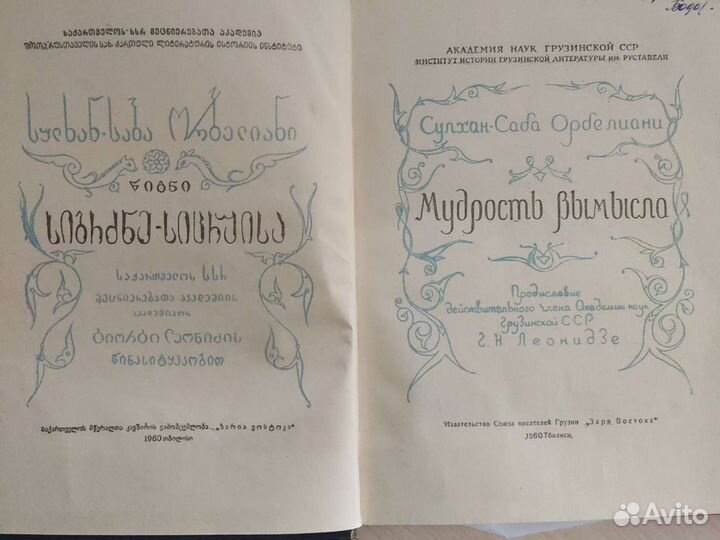 საქართველოს სსრ მეცნიერებათა აკადემია
შოთა რუსთაველის სახ. ქართული ლიტერატურის ისტორიის ინსტიტუტი
სულხან-საბა ორბელიანი
წიგნი
სიბრძნე-სიცრუისა
საქართველოს სსრ
მეცნიერებათა აკადემიის
აკადემიკოს
გიორგი ლეონიძის
წინასიტყვაობით
საქართველოს მწერალთა კავშირის გამომცემლობა „ზარია ვოსტოკა"
1960 თბილისი
АКАДЕМИЯ НАУК ГРУЗИНСКОЙ ССР
ИНСТИТУТ ИСТОРИИ ГРУЗИНСКОЙ ЛИТЕРАТУРЫ ИМ. РУСТАВЕЛИ
Сулхан-Саба Орбелиани
Мудрость вымысла
Предисловие
действительного члена Академии наук
Грузинской ССР
Г. Н. Леонидзе
Издательство Союза писателей Грузии „Заря Востока"
1960 Тбилиси
Avito